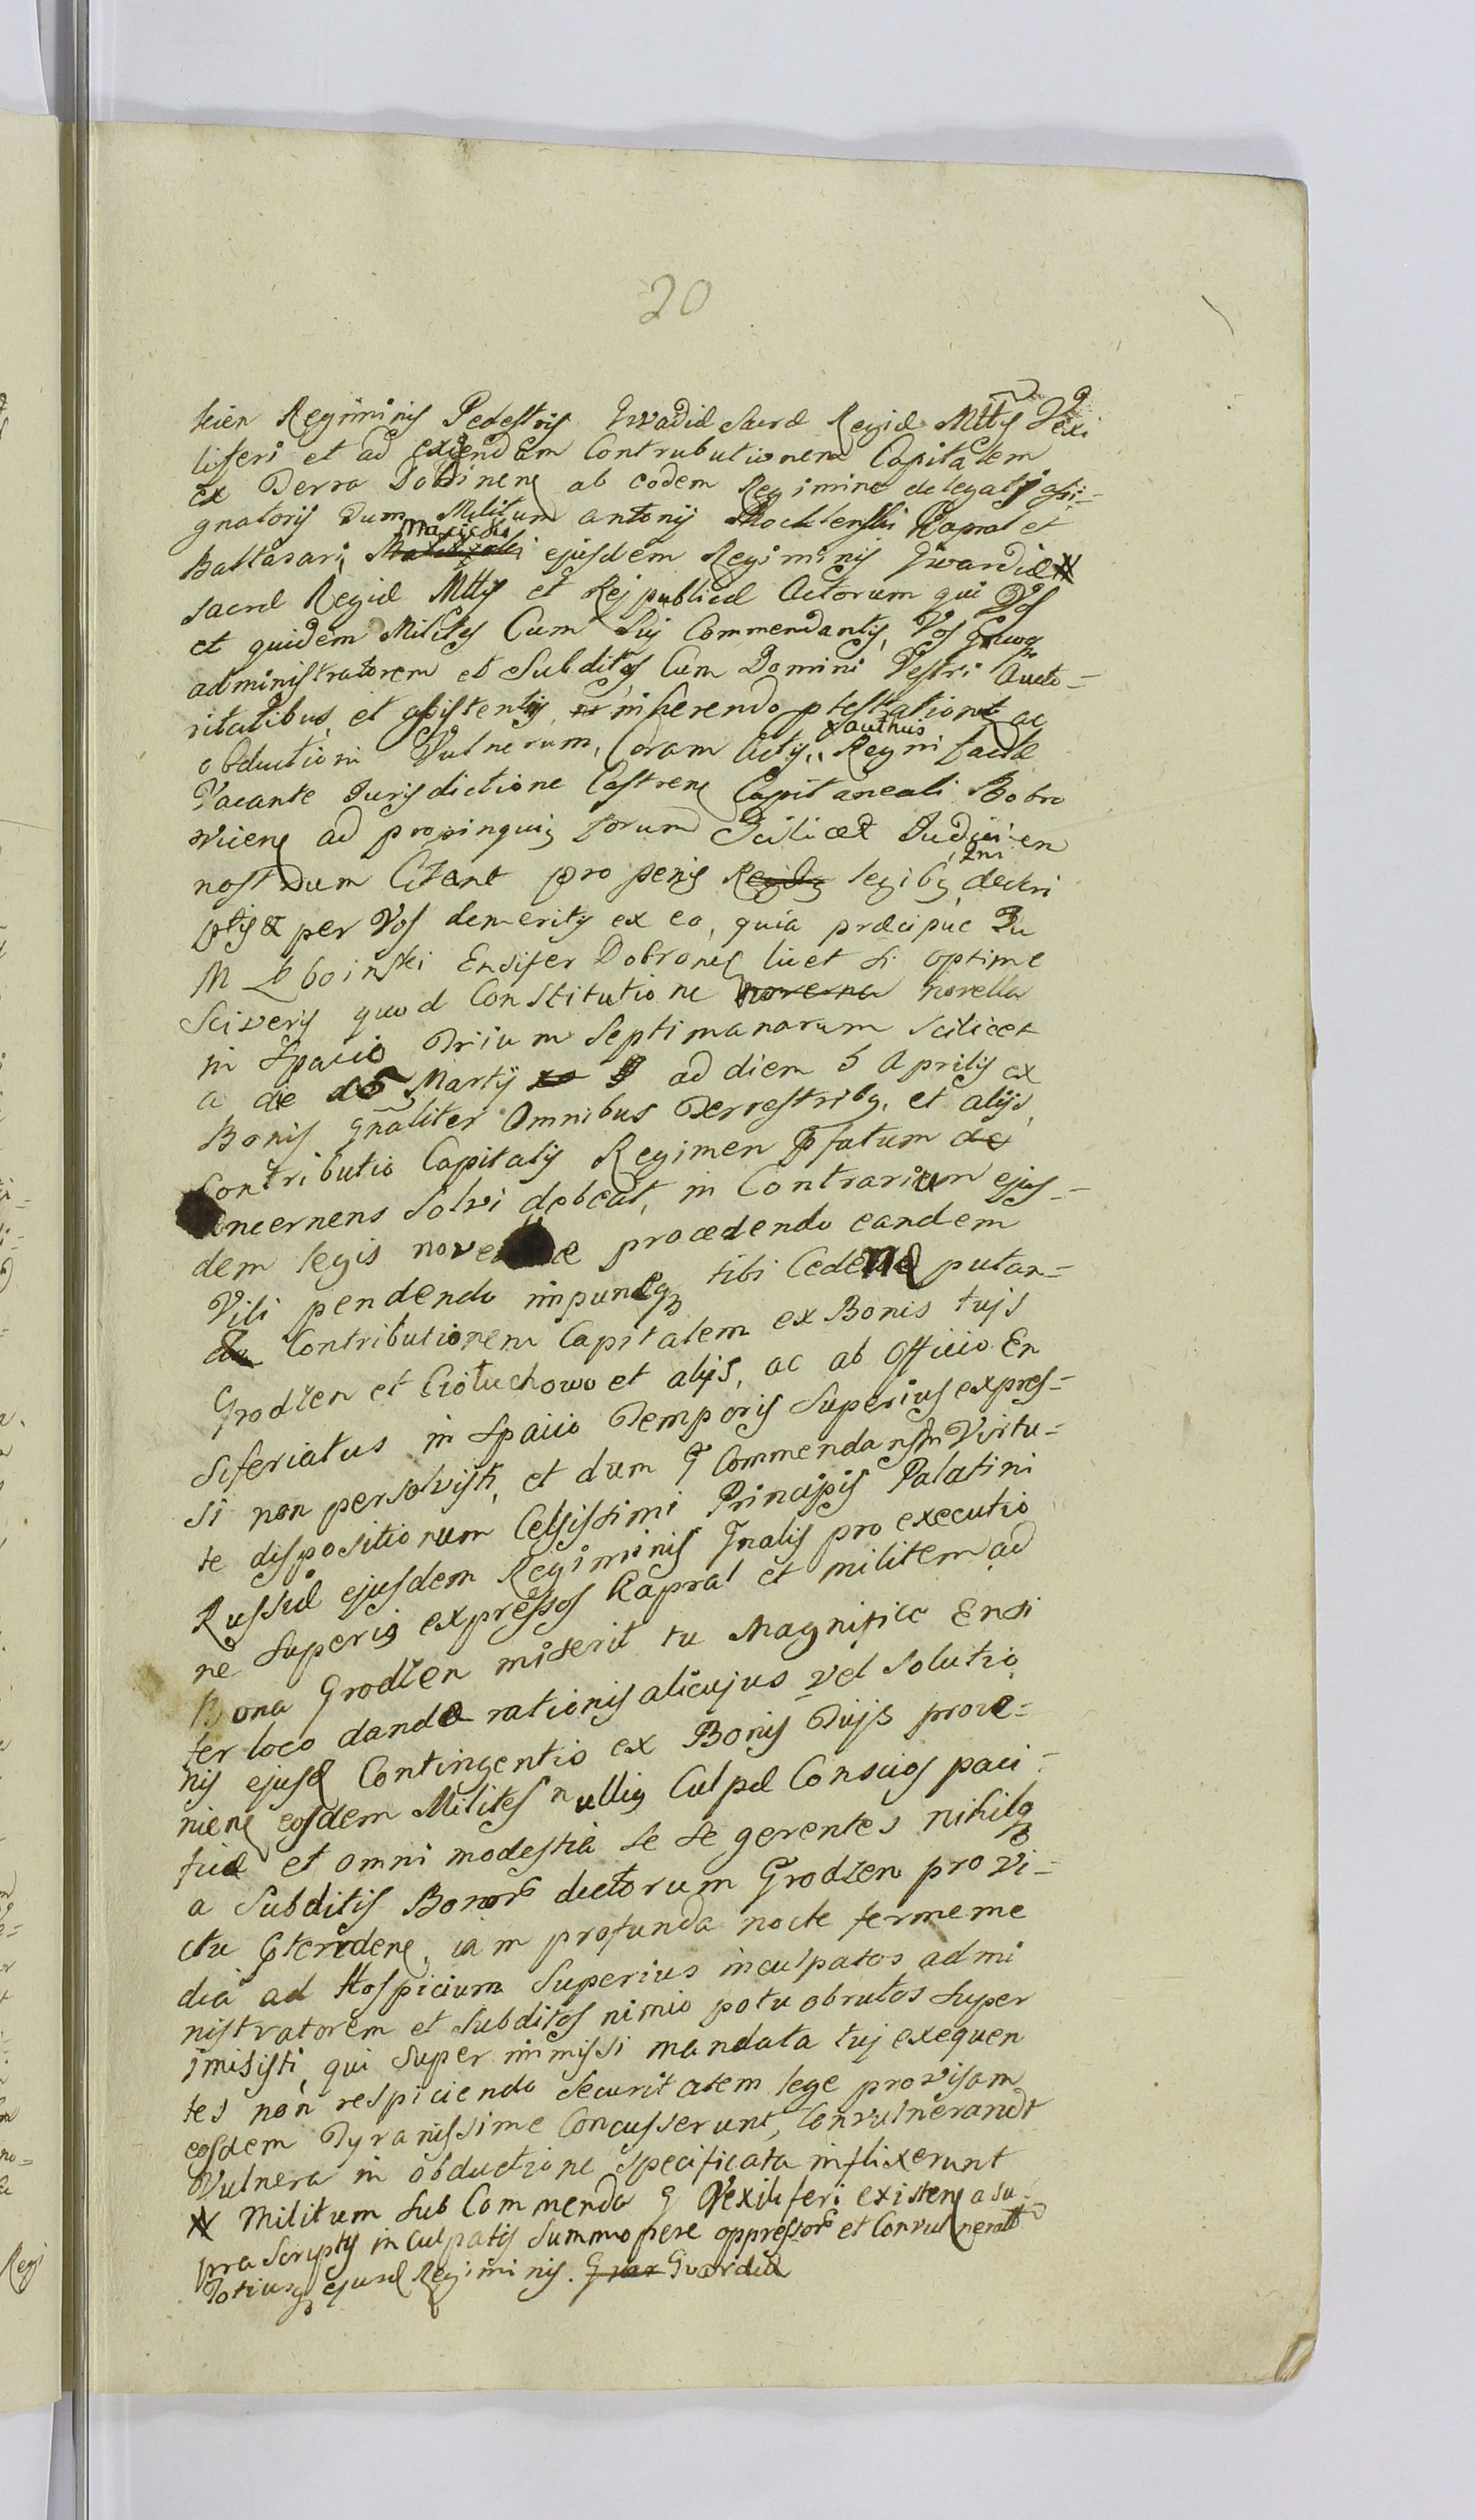 20
kien Regiminis Pedestris Gwadiæ Sacræ Regiæ Mttis Vexi
liferi et ad exigendam Contrubutionem Capitalem
ex Terra Dobrinen ab eodem Regimine delegati assi-
gnatoris Tum Militum Antonij Kapral et
Baltasari Maricki ejusdem Regiminis Gwardiæ
Sacræ Regiæ Mttis et Reipublicæ Actorum qui Vos
et quidem Milites Cum Suis Commendantis, Vos
administratorem et Subditos Cum Domini Vestri Aucto-
ritatibus et assistentijs, inherendo ptestationi ac
obductioni Vulnerum, Coram Actis authus Regni factæ
Vacante Jurisdictione Castren Capitaneali Bobro
vicens ad propinquis forum Scilicet Judicien
nostrum Citant pro penis legibus 2m descri
ptis & per Vos demeritis ex eo, quia præcipue Tu
M Zboinski Ensifer Dobronen licet si optime
Sciveris quod Constitutione novella
in Spacio Trium Septimanarum scilicet
a die 15 Martij ad diem 5 Aprilis ex
Bonis gnaliter Omnibus Terrestribus, et alijs
Contributio Capitalis Regimen pfatum
Concernens Solvi debeat, in Contrarium ejus-
dem legis procedendo eandem
Vili pendendo impuneq tibi Cedere putan-
do Contributionem Capitalem ex Bonis tuis
Grodzen et Ciołuchowo et alijs, ac ab Officio En
siferiatus in Spacio Temporis Superius expres-
si non persolvisti, et dum G Commendans in Virtu-
te dispositionum Celsissimi Principis Palatini
Russiæ ejusdem Regiminis Gnalis pro executio
ne Superius expressos Kapral et militem ad
Bona Grodzen miserit tu Magnifice Ensi
fer loco dandæ rationis alicujus vel Solutio
nis ejusd Contingentio ex Bonis Tuis prove-
nien eosdem Milites nullius Culpæ Conscios paci-
fice et omni modestia se se gerentes nihilq
a Subditis Bonor dictorum Grodzen pro vi-
ctu iam profunda nocte ferme me
dia ad Hospicium Superius inculpatos admi
nistratorem et Subditos nimio potu obrutos Super
imisisti, qui Super immissi mandata tuj exequen
tes non respiciendo Securitatem lege provisam
eosdem Tyranissime Concusserunt, Convulnerandt
Vulnera in obductione specificata inflixerunt
Militum Sub Commenda G Vexiliferi existen a su-
pra Scriptis inculpatis Summopere oppressor et Convulnerato
Totiusq ejusd Regiminis. Gvardiæ